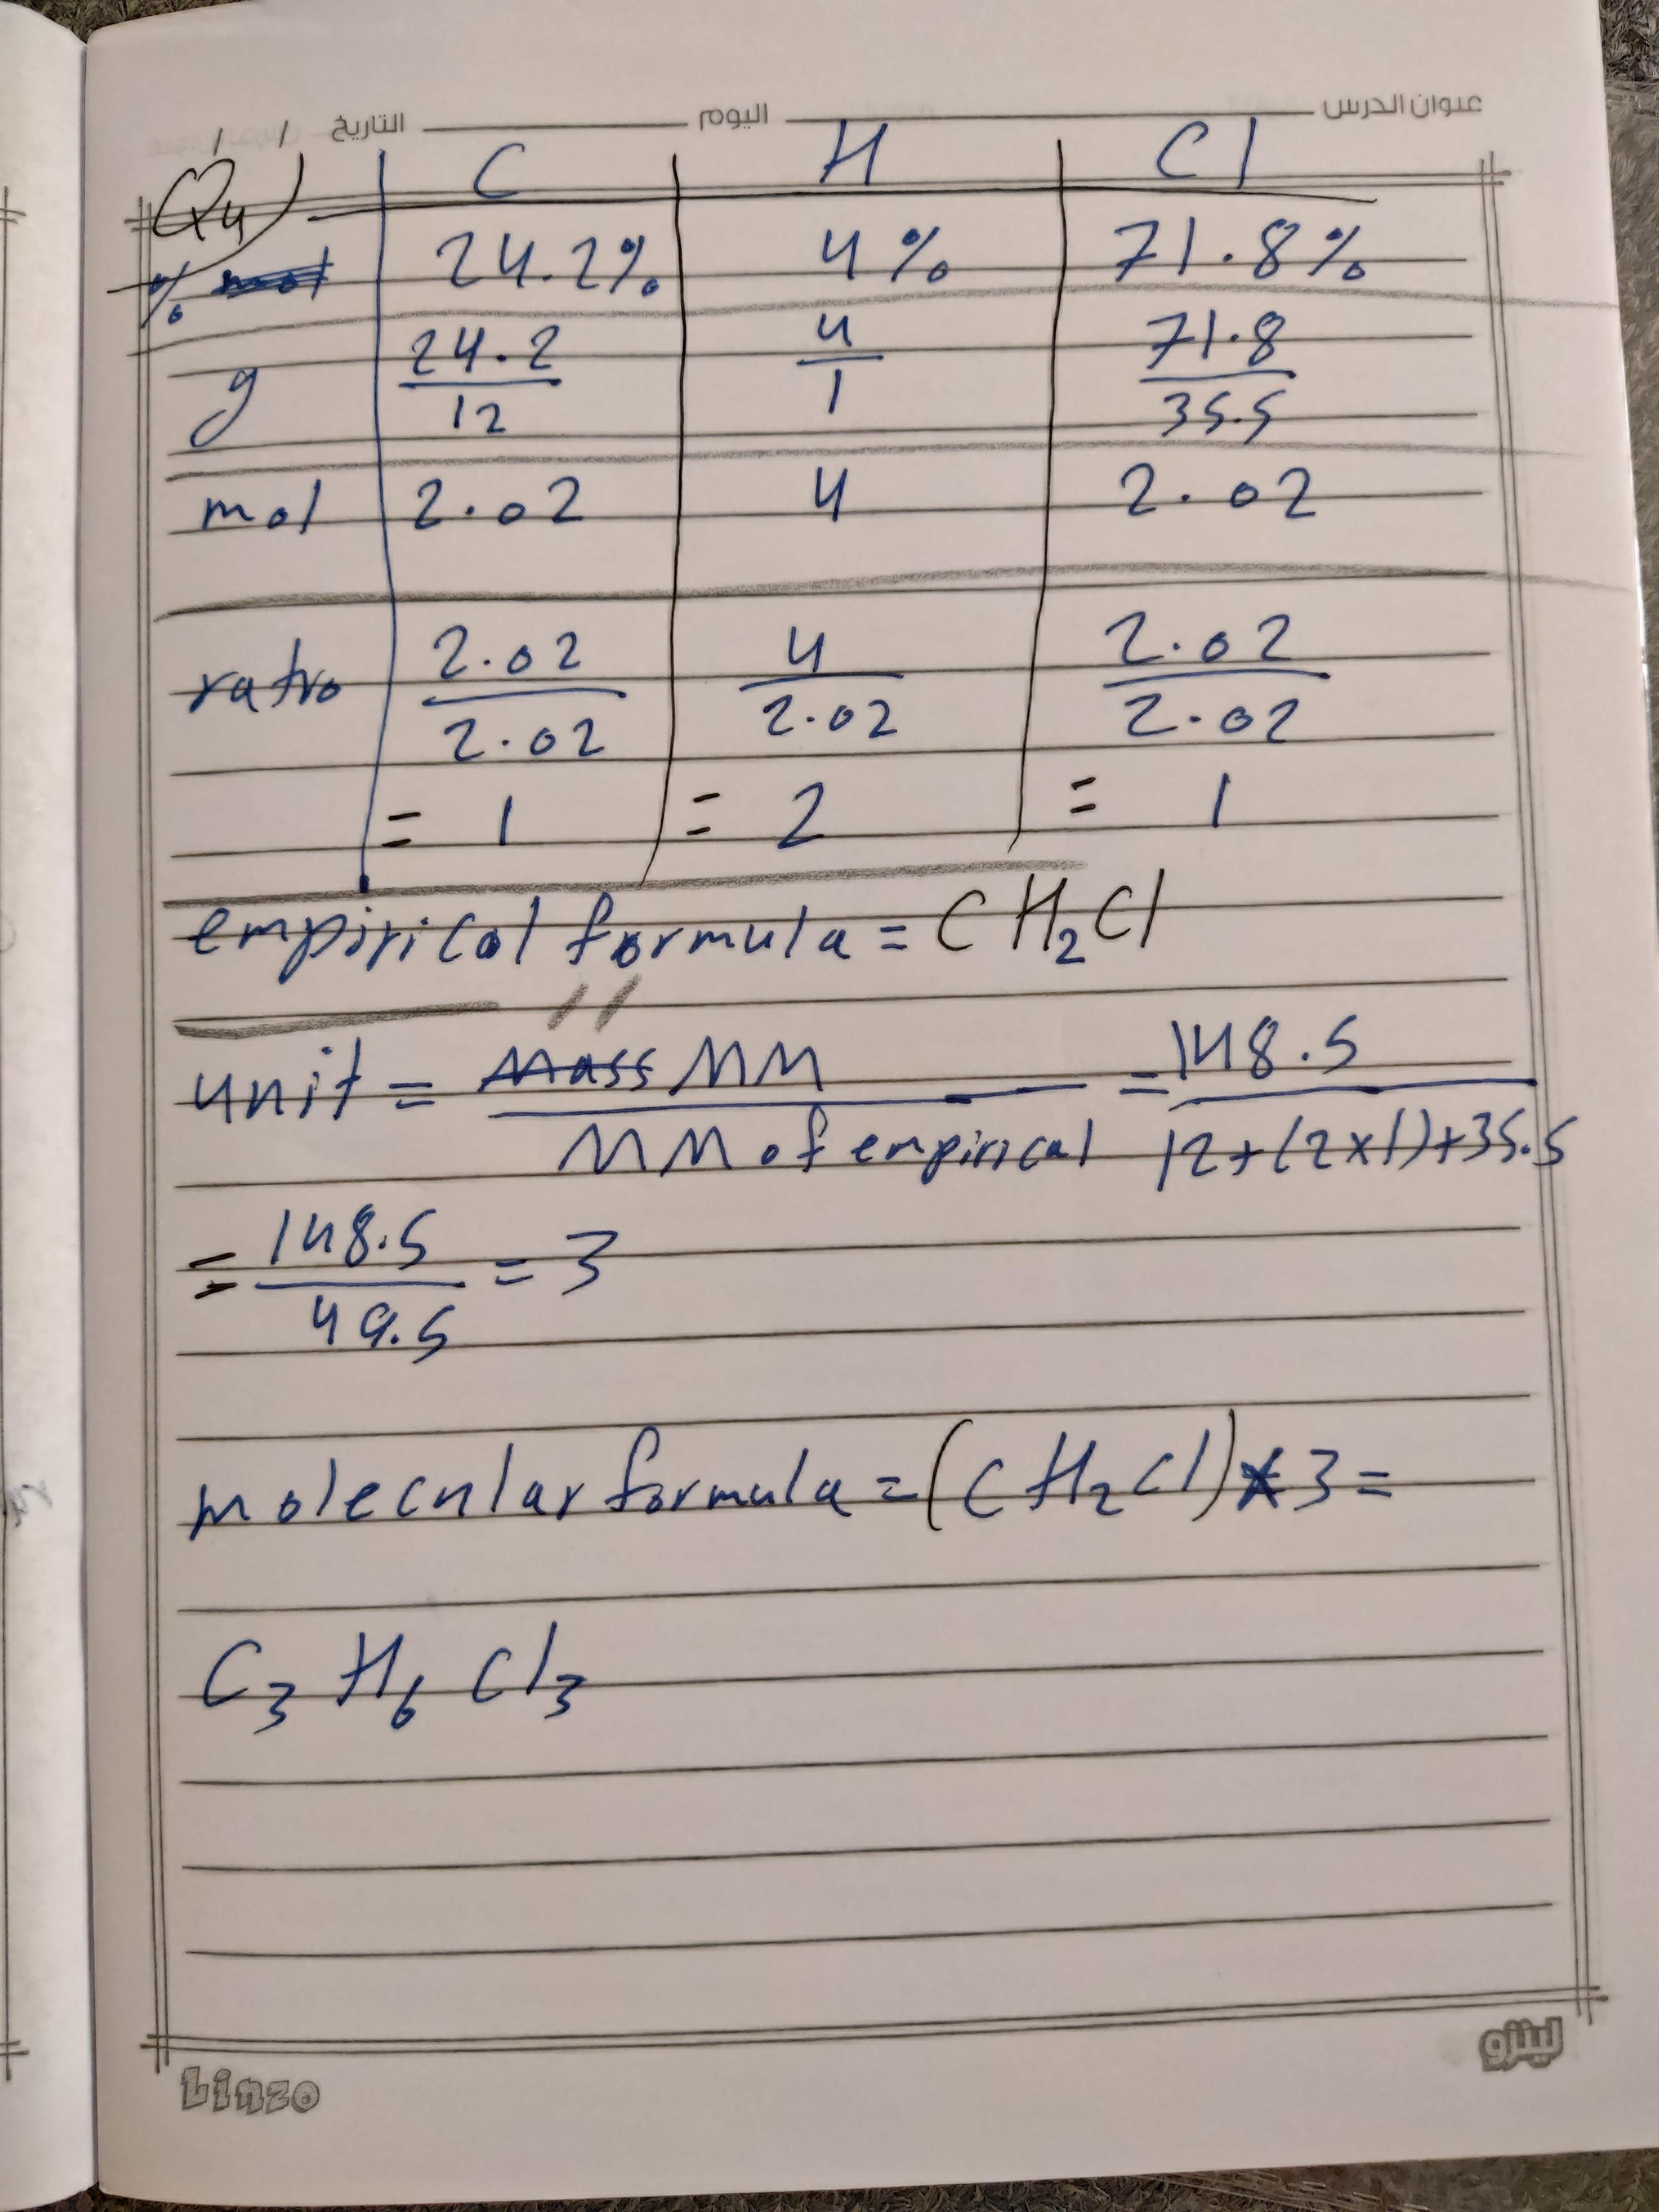 عنوان الدرس اليوم التاريخ / /
Q4) C H Cl
% 24.2% 4% 71.8%
g 24.2/12 4/1 71.8/35.5
mol 2.02 4 2.02
ratio 2.02/2.02 4/2.02 2.02/2.02
= 1 = 2 = 1
empirical formula = CH₂Cl
unit = Mass MM / MM of empirical = 148.5 / 12+(2×1)+35.5
= 148.5/49.5 = 3
molecular formula = (CH₂Cl)×3 =
C₃ H₆ Cl₃
Linzo لينزو